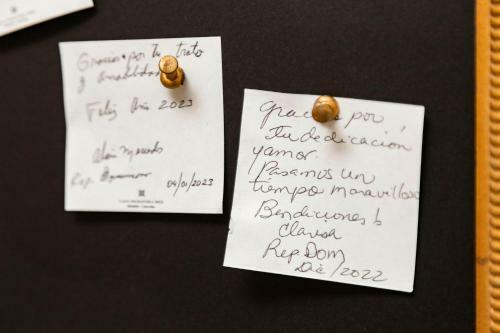 Gracias por tu trato
y amabilidad
Feliz Año 2023
Rep.
04/01/2023
Gracias por
tu dedicación
y amor.
Pasamos un
tiempo maravilloso
Bendiciones
Clarisa
Rep DOM
Dic/2022